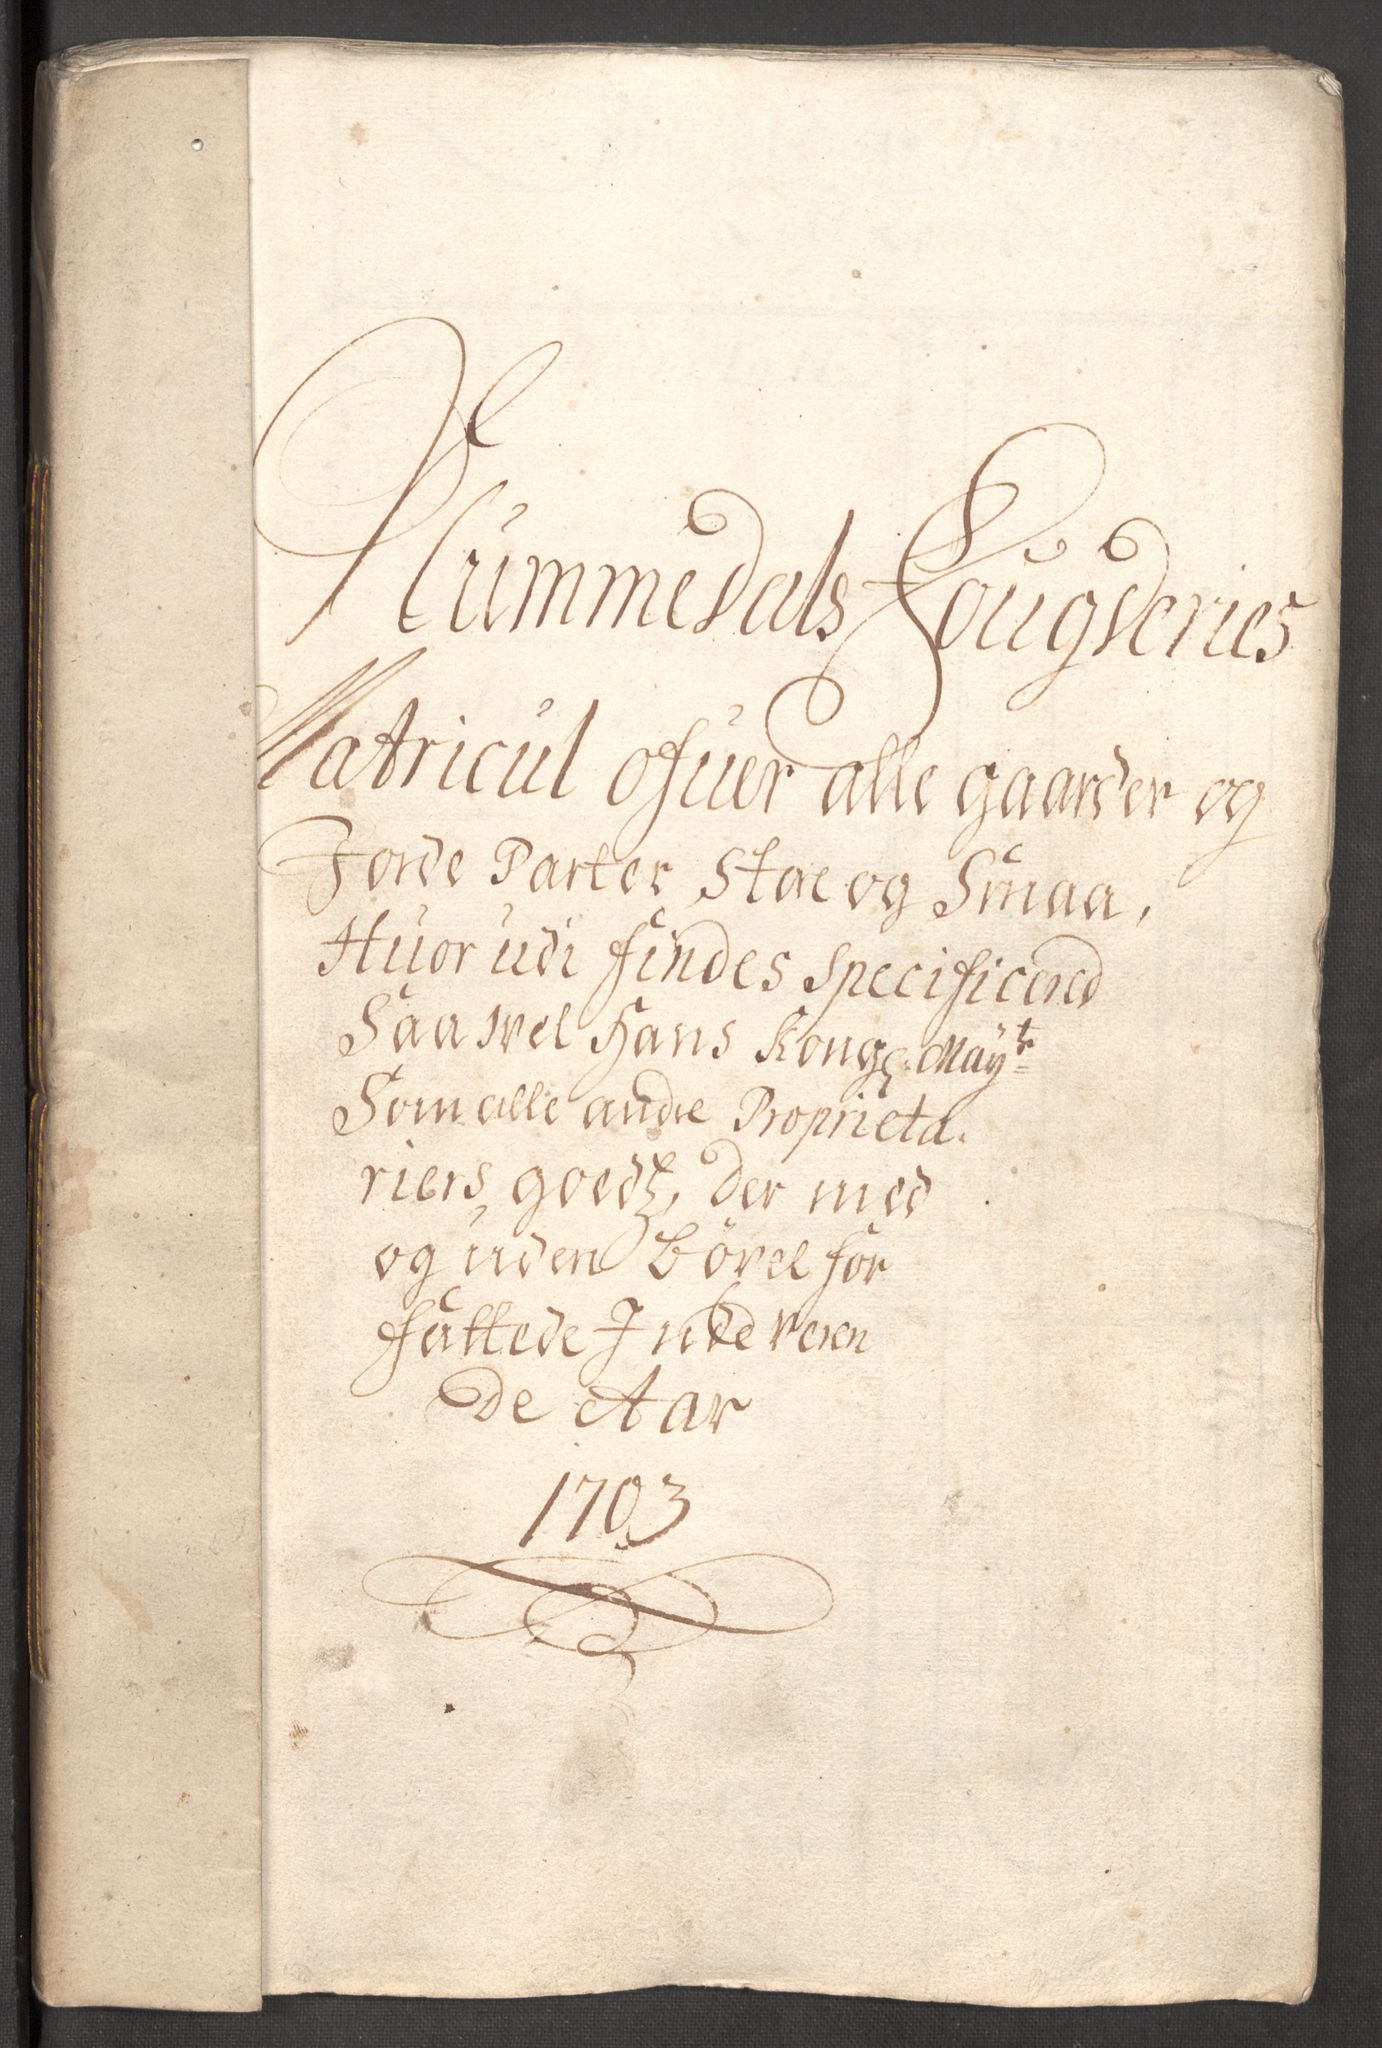 Nummedals Fougderies
Matricul ofuer alle gaarder og
Jorde Parter Store og Smaa,
Huor udi findes Specificered
Saa vel Hans Kongl. Mayts
Som alle andre Proprieta-
riers goeds, der med
og uden böxel for
fattede Inde verren
de Aar
1703